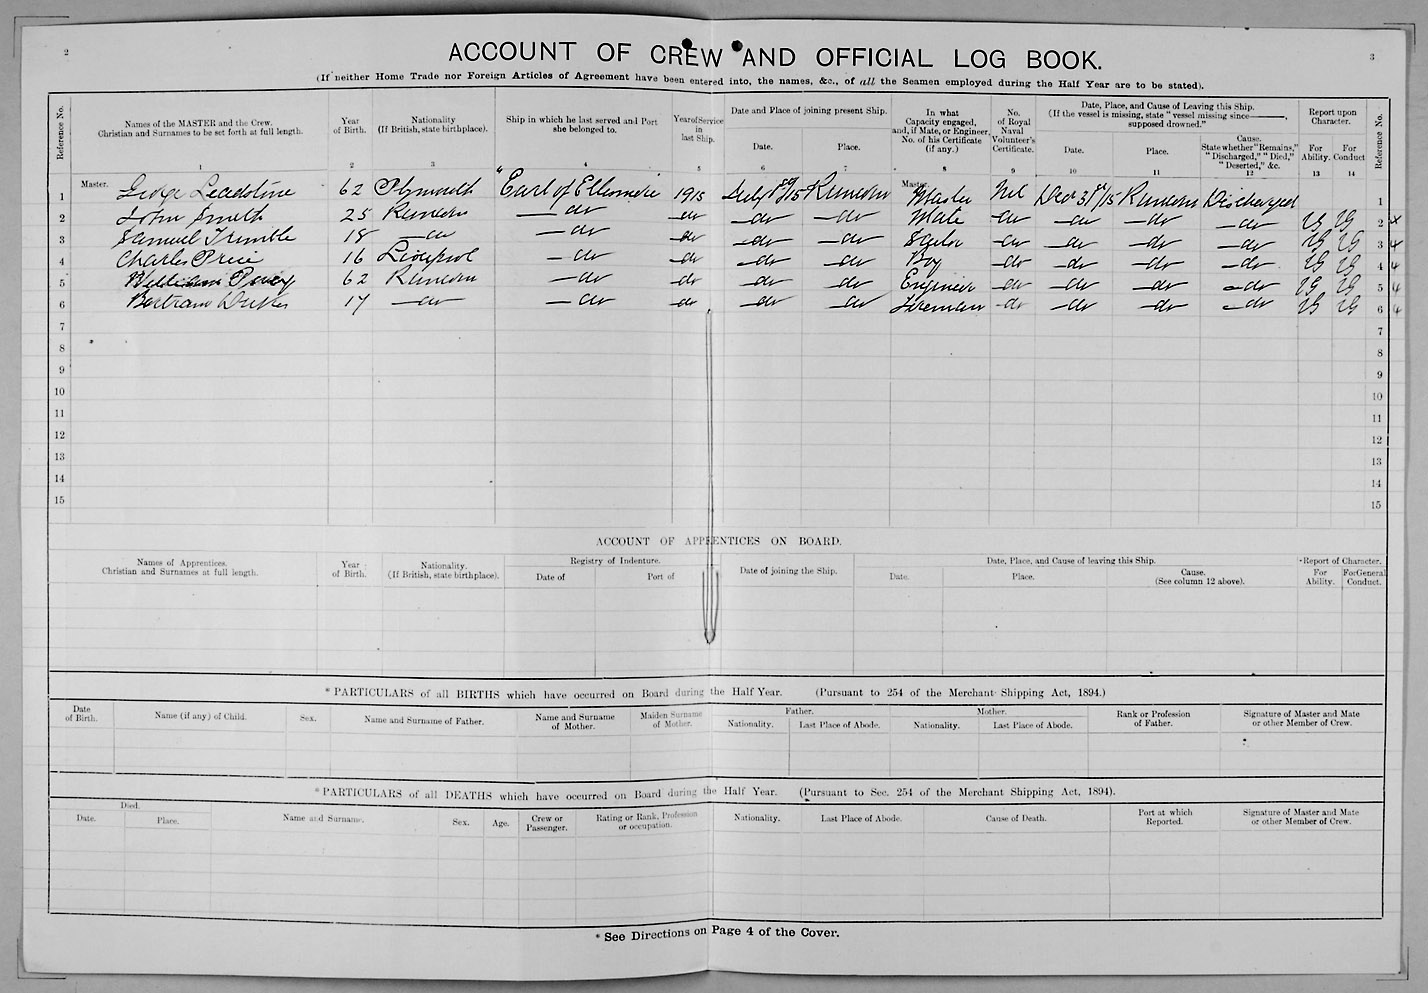 2
3
ACCOUNT OF CREW AND OFFICIAL LOG BOOK.
(If neither Home Trade nor Foreign Articles of Agreement have been entered into, the names, &c., of all the Seamen employed during the Half Year are to be stated).
Reference No. Names of the MASTER and the Crew. Christian and Surnames to be set forth at full length. 1 Year of Birth. 2 Nationality (If British, state birthplace). 3 Ship in which he last served and Port she belonged to. 4 Year of Service in last Ship. 5 Date and Place of joining present Ship. Date. 6 Place. 7 In what Capacity engaged, and, if Mate, or Engineer, No. of his Certificate (if any.) 8 No. of Royal Naval Volunteer's Certificate. 9 Date, Place, and Cause of Leaving this Ship. (If the vessel is missing, state "vessel missing since———, supposed drowned." Date. 10 Place. 11 Cause. State whether "Remains," "Discharged," "Died," "Deserted," &c. 12 Report upon Character. For Ability. 13 For Conduct 14 Reference No.
1 Master. George Leadstine 62 Plymouth "Earl of Ellesmere 1915 July 1st/15 Runcorn Master. Master Nil Dec 31st/15 Runcorn Discharged 1
2 John Smith 25 Runcorn do do do do Mate do do do do VG VG 2
3 Samuel Trimble 18 do do do do do Sailor do do do do VG VG 3 4
4 Charles Price 16 Liverpool do do do do Boy do do do do VG VG 4 4
5 William 62 Runcorn do do do do Engineer do do do do VG VG 5 4
6 Bertram 17 do do do do do Fireman do do do do VG VG 6 4
7 7
8 8
9 9
10 10
11 11
12 12
13 13
14 14
15 15
ACCOUNT OF APPRENTICES ON BOARD.
Names of Apprentices. Christian and Surnames at full length. Year of Birth. Nationality. (If British, state birthplace). Registry of Indenture. Date of Port of Date of joining the Ship. Date, Place, and Cause of leaving this Ship. Date. Place. Cause. (See column 12 above). Report of Character. For Ability. For General Conduct.
* PARTICULARS of all BIRTHS which have occurred on Board during the Half Year. (Pursuant to 254 of the Merchant Shipping Act, 1894.)
Date of Birth. Name (if any) of Child. Sex. Name and Surname of Father. Name and Surname of Mother. Maiden Surname of Mother. Father. Nationality. Last Place of Abode. Mother. Nationality. Last Place of Abode. Rank or Profession of Father. Signature of Master and Mate or other Member of Crew.
* PARTICULARS of all DEATHS which have occurred on Board during the Half Year. (Pursuant to Sec. 254 of the Merchant Shipping Act, 1894).
Died. Date. Place. Name and Surname. Sex. Age. Crew or Passenger. Rating or Rank, Profession or occupation. Nationality. Last Place of Abode. Cause of Death. Port at which Reported. Signature of Master and Mate or other Member of Crew.
* See Directions on Page 4 of the Cover.